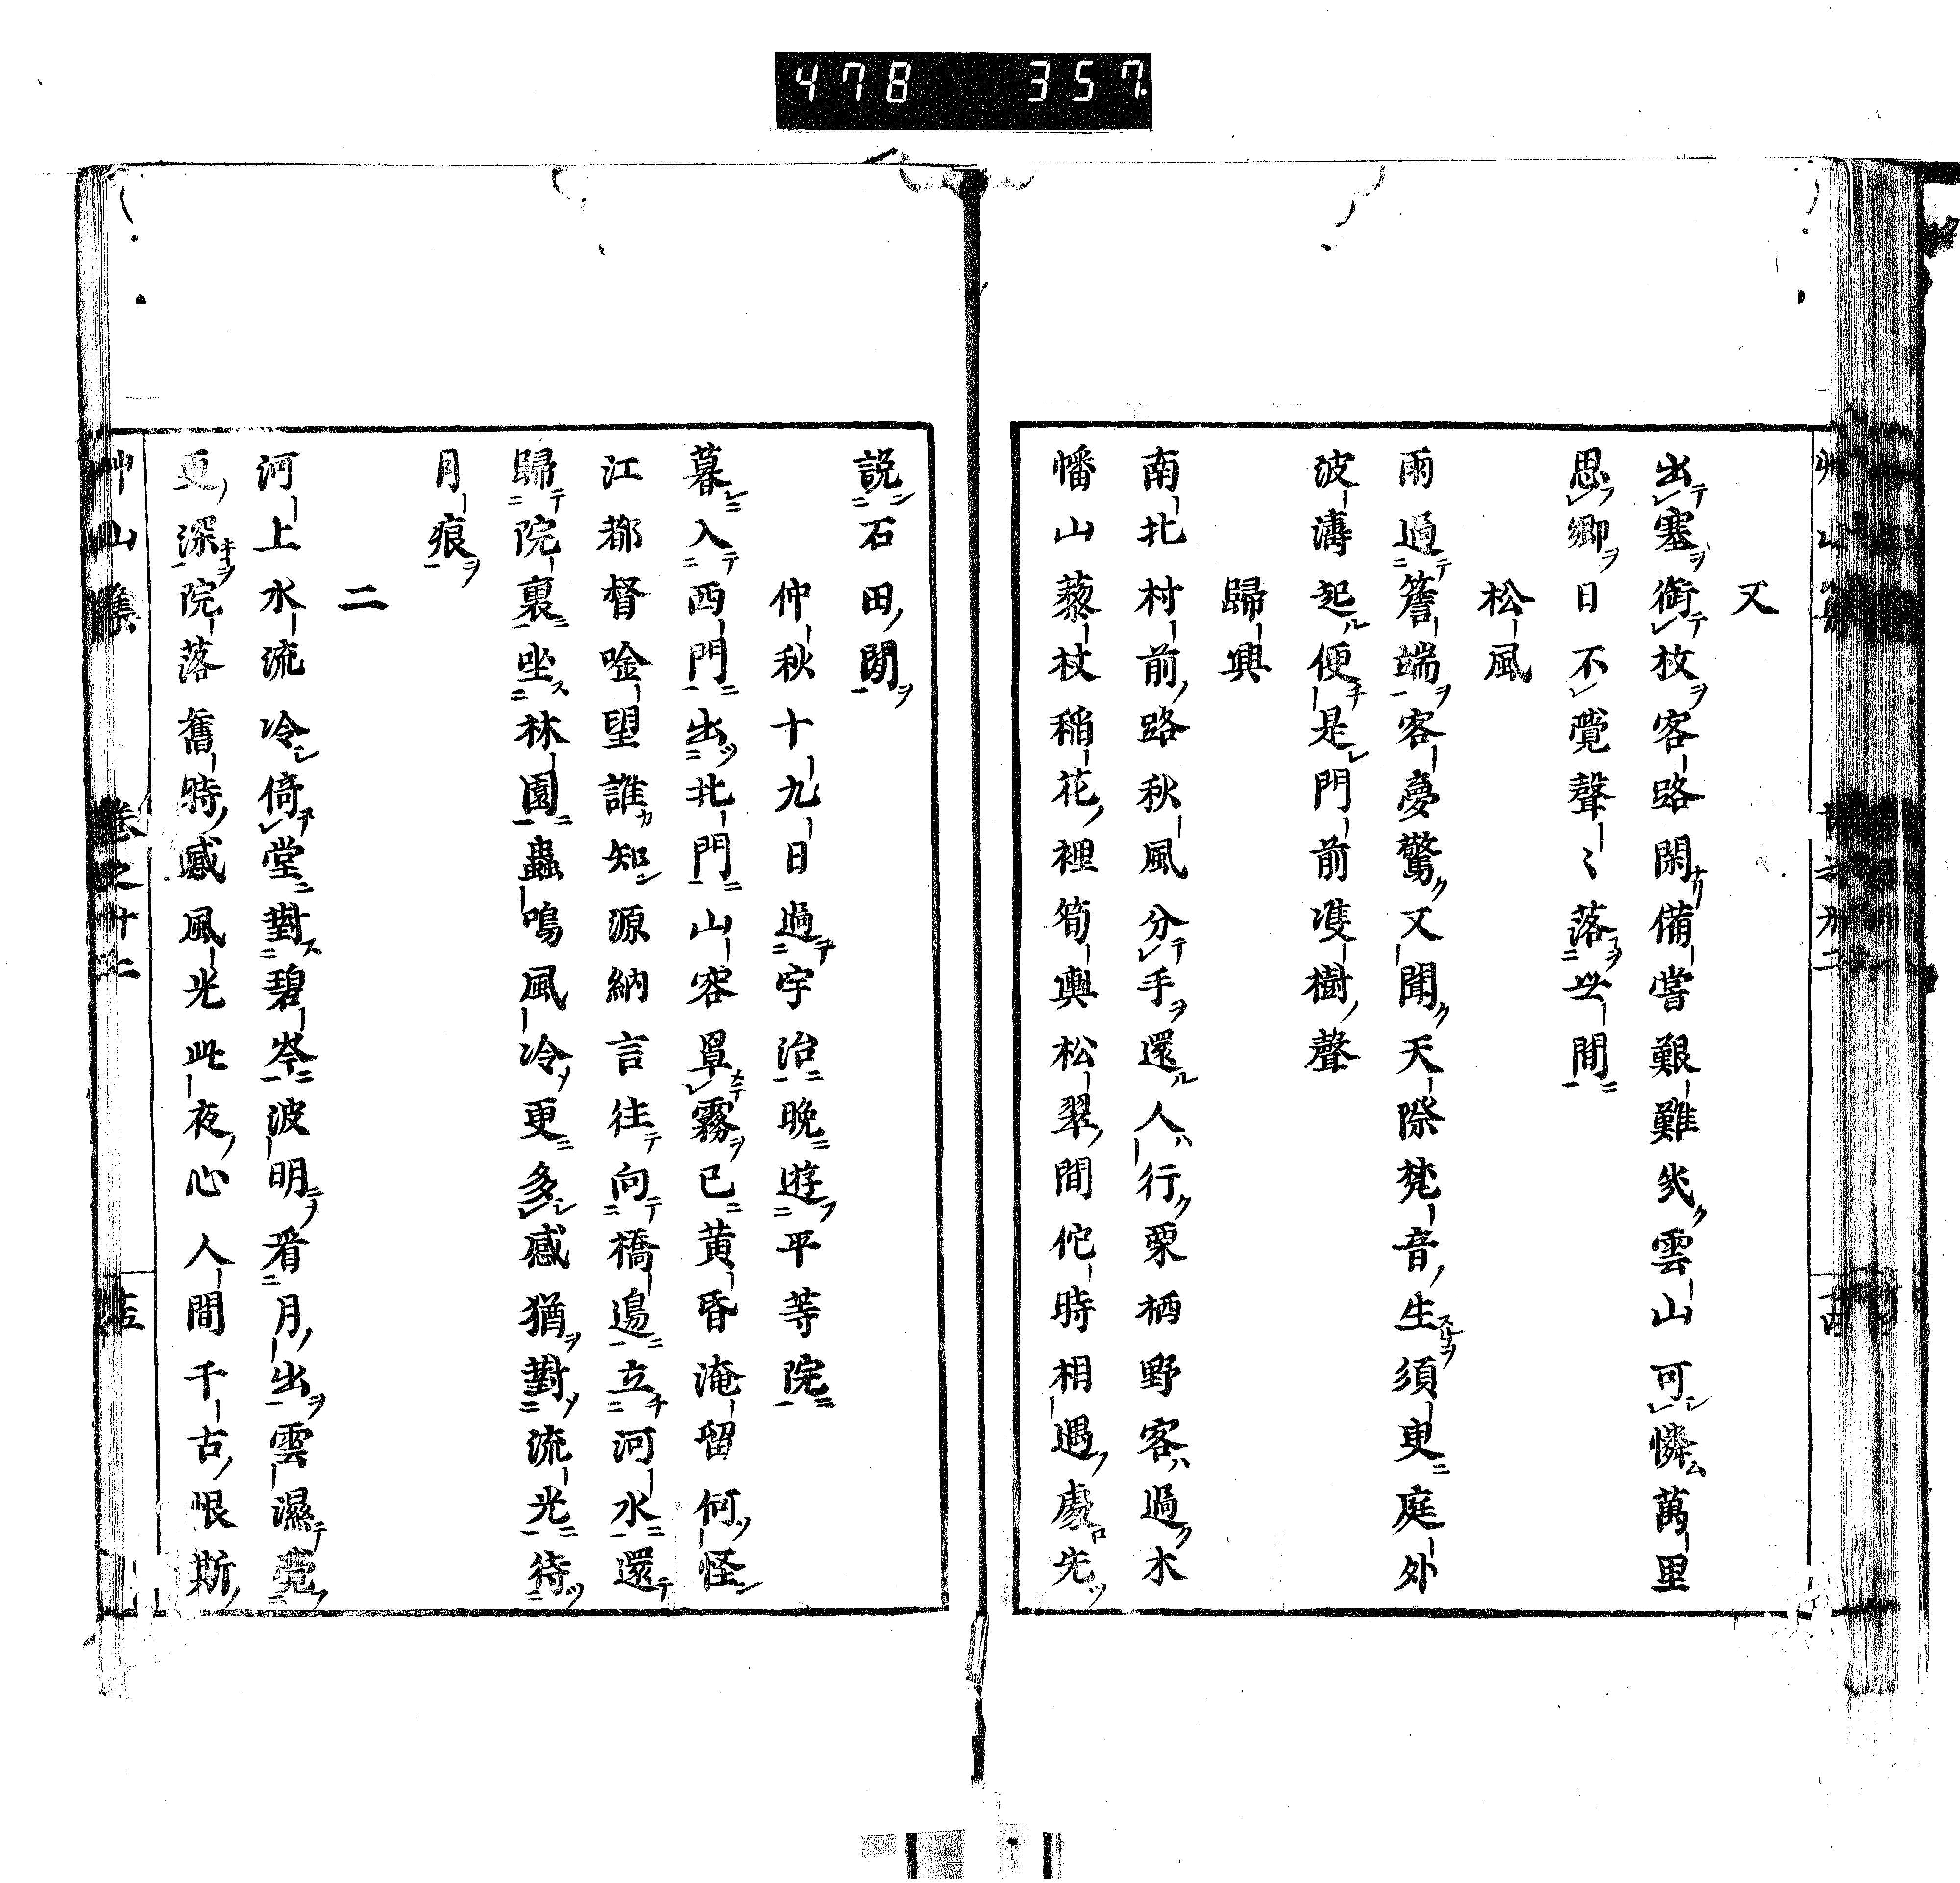 478 357
又
出塞銜枚客路閑備嘗艱難幾雲山可憐萬里
思鄉日不覺聲〻落世間
松風
雨過簷端客夢驚又聞天際梵音生須臾庭外
波濤起便是門前雙樹聲
歸輿
南北村前路秋風分手還人行栗栖野客過木
幡山藜杖稲花裡筍輿松翠間佗時相遇處先
說石田閒
仲秋十九日過宇治晚遊平等院
暮入西門出北門山容罩霧已黃昏淹留何怪
江都督唫望誰知源納言往向橋邉立河水還
歸院裏坐林園蟲鳴風冷更多感猶對流光待
月痕
二
河上水流冷倚堂對碧岑波明看月出雲濕覺
更深院落舊時感風光此夜心人間千古恨斯
艸山集 卷之廿二